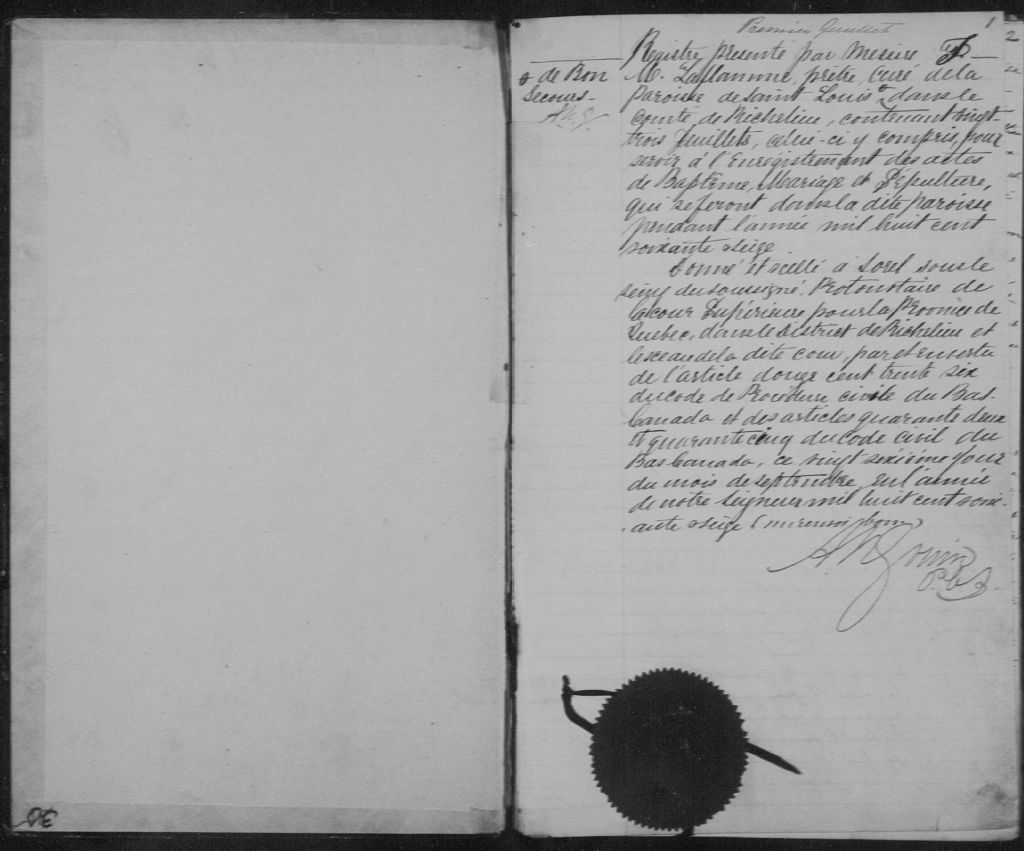 Premier feuillet
1
2
Registre presenté par Messire J-
M. Laflamme, prêtre, Curé de la
Paroisse de Saint Louis dans le
Comté de Richelieu, contenant vingt-
trois feuillets, celui-ci y compris, pour
servir à l'Enregistrement des actes
de Baptême, Mariage et Sépulture,
qui se feront dans la dite paroisse
pendant l'année mil huit cent
soixante seize.
Donné et scellé à Sorel sous le
seing du soussigné, Protonotaire de
la cour Supérieure pour la Province de
Québec, dans le District de Richelieu et
le sceau de la dite cour, par et en vertu
de l'article douze cent trente six
du code de Procédure civile du Bas-
Canada et des articles quarante deux
et quarante cinq du code civil du
Bas Canada, ce vingt sixième jour
du mois de septembre, en l'année
de notre Seigneur mil huit cent soix-
ante seize (un renvoi bon)
A. N. Gouin
P. C. S.
de Bon
Secours-
A.N.G.